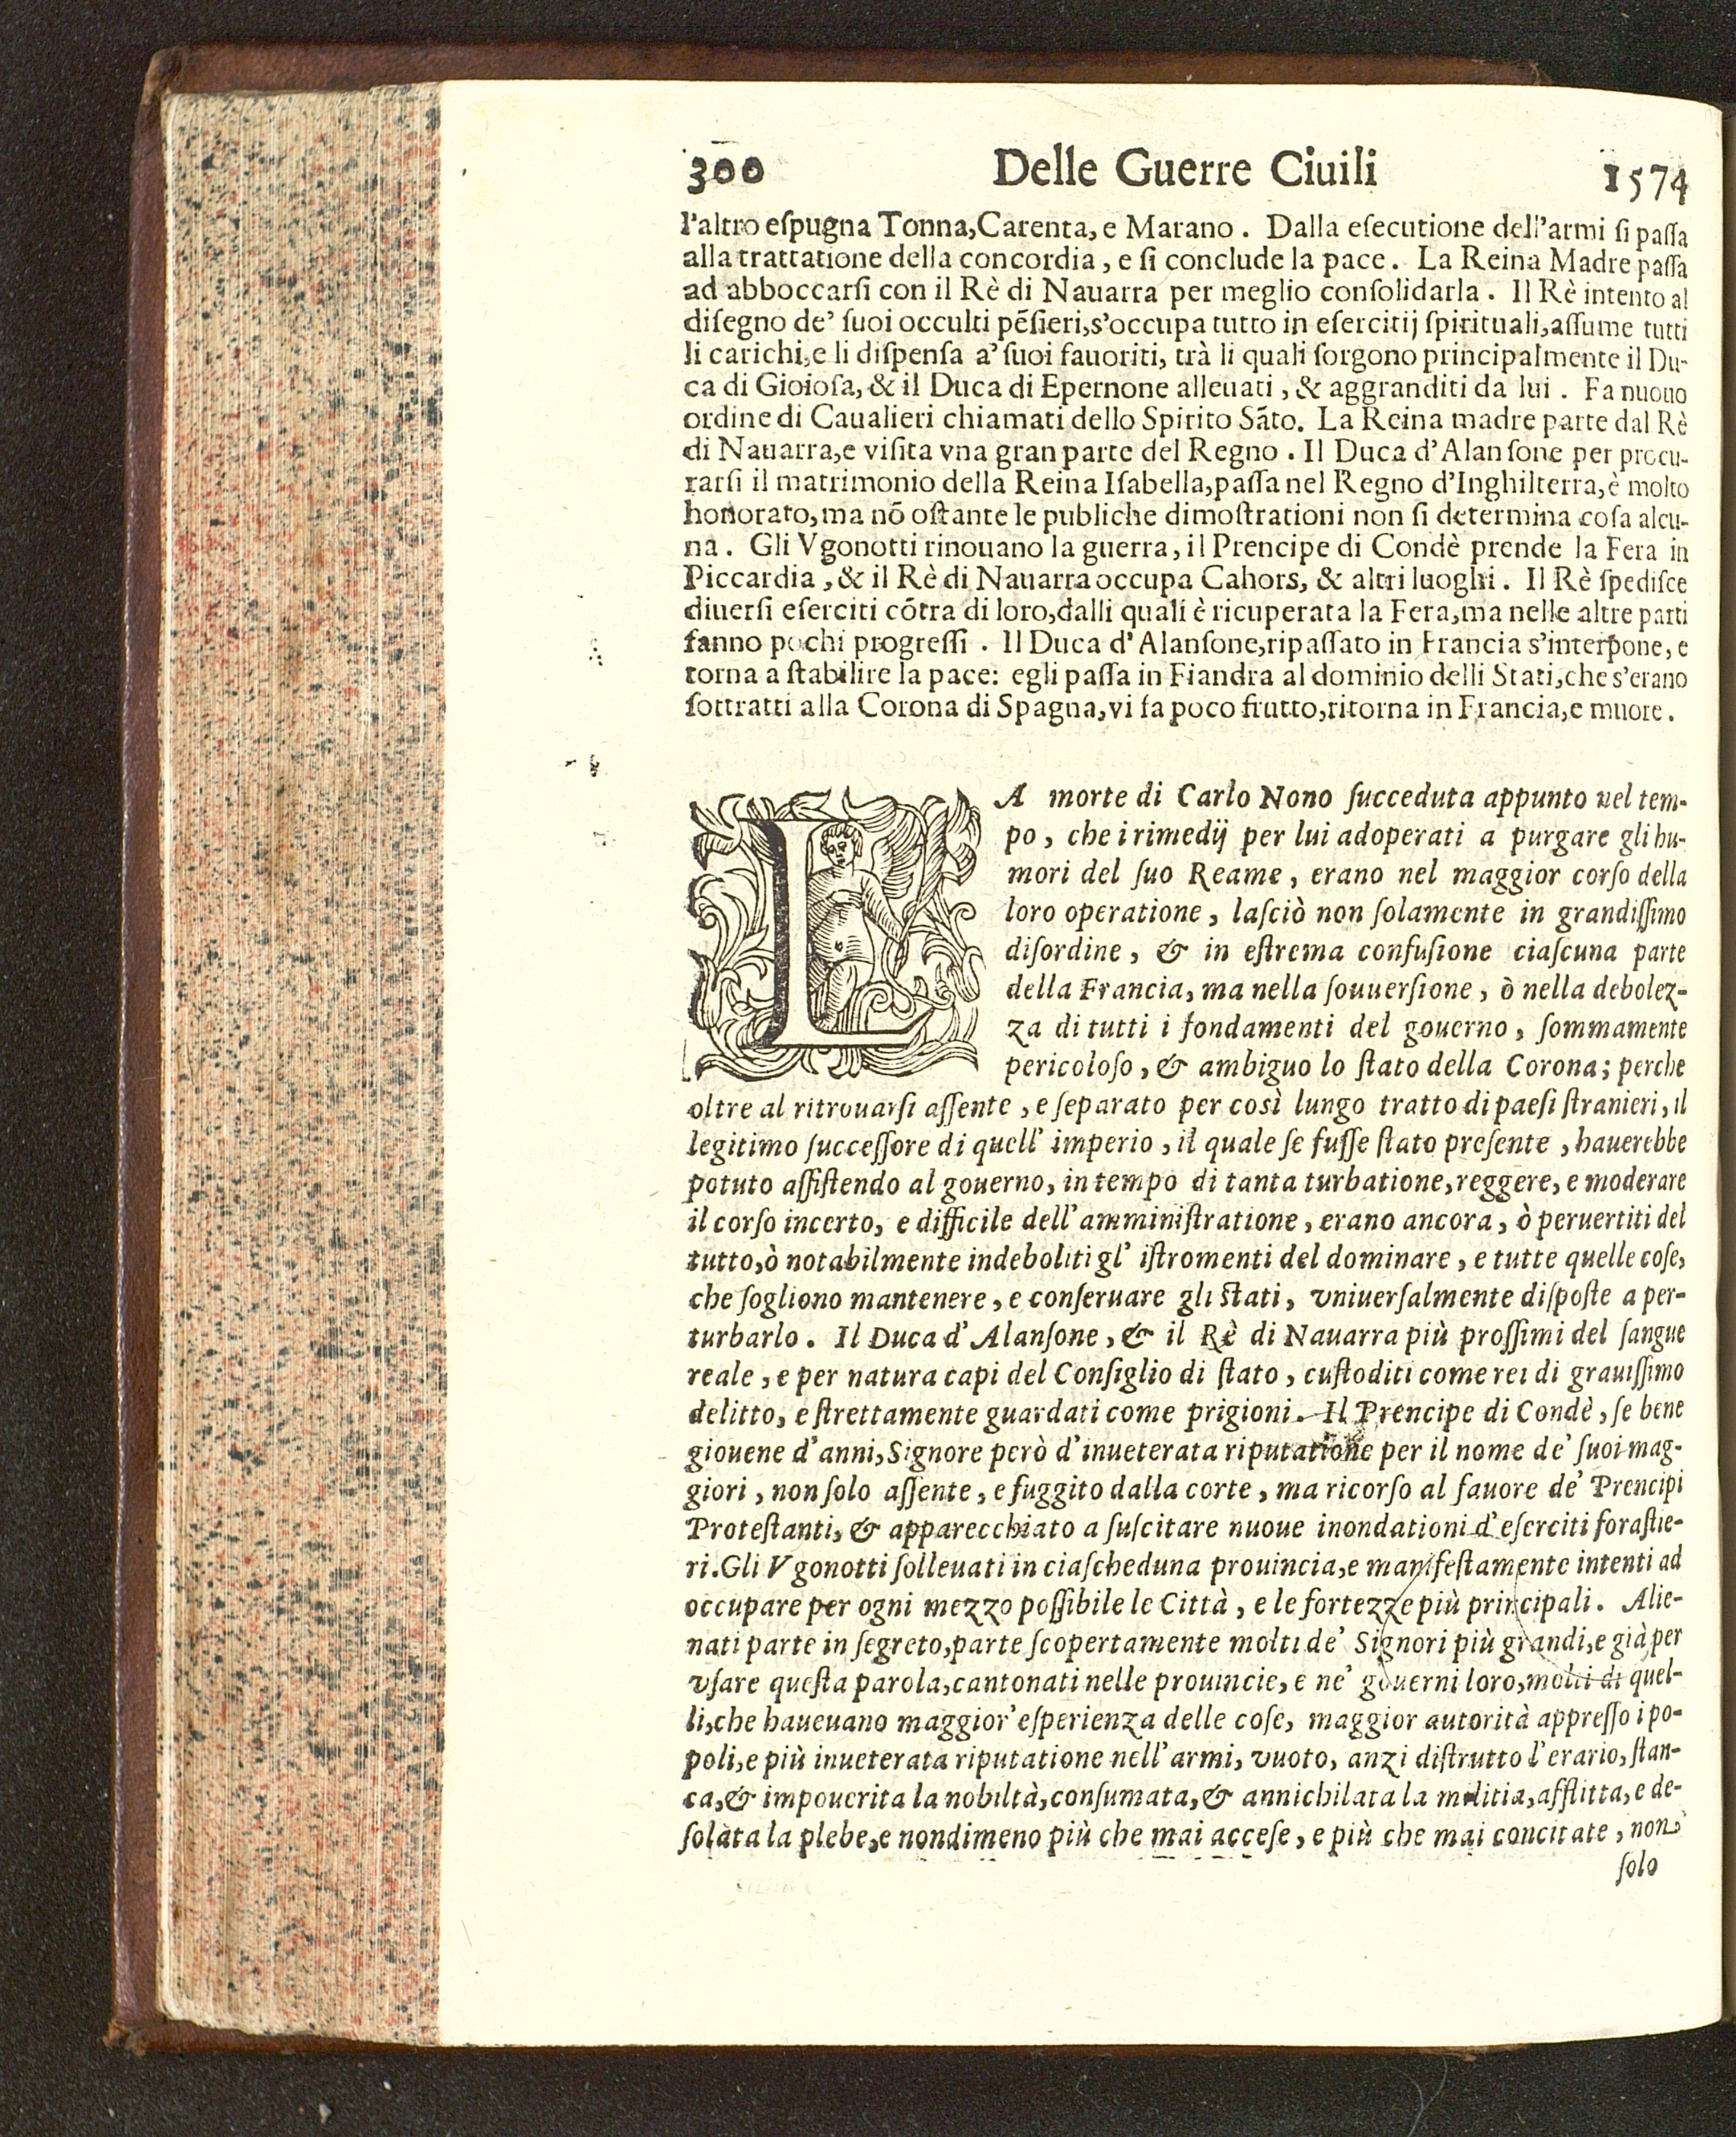 300 Delle Guerre Ciuili 1574
l'altro eſpugna Tonna,Carenta, e Marano. Dalla eſecutione dell'armi ſi paſſa
alla trattatione della concordia, e ſi conclude la pace. La Reina Madre paſſa
ad abboccarſi con il Rè di Nauarra per meglio conſolidarla. Il Rè intento al
diſegno de' ſuoi occulti pẽſieri,s'occupa tutto in eſercitij ſpirituali,aſſume tutti
li carichi,e li diſpenſa a' ſuoi fauoriti, trà li quali ſorgono principalmente il Du-
ca di Gioioſa, & il Duca di Epernone alleuati, & aggranditi da lui. Fa nuouo
ordine di Caualieri chiamati dello Spirito Sãto. La Reina madre parte dal Rè
di Nauarra,e viſita vna gran parte del Regno. Il Duca d'Alanſone per procu-
rarſi il matrimonio della Reina Iſabella,paſſa nel Regno d'Inghilterra,è molto
honorato,ma nõ oſtante le publiche dimoſtrationi non ſi determina coſa alcu-
na. Gli Vgonotti rinouano la guerra, il Prencipe di Condè prende la Fera in
Piccardia, & il Rè di Nauarra occupa Cahors, & altri luoghi. Il Rè ſpediſce
diuerſi eſerciti cõtra di loro,dalli quali è ricuperata la Fera,ma nelle altre parti
fanno pochi progreſſi. Il Duca d'Alanſone,ripaſſato in Francia s'interpone, e
torna a ſtabilire la pace: egli paſſa in Fiandra al dominio delli Stati,che s'erano
ſottratti alla Corona di Spagna,vi fa poco frutto,ritorna in Francia,e muore.
LA morte di Carlo Nono ſucceduta appunto nel tem-
po, che i rimedij per lui adoperati a purgare gli hu-
mori del ſuo Reame, erano nel maggior corſo della
loro operatione, laſciò non ſolamente in grandiſſimo
diſordine, & in eſtrema confuſione ciaſcuna parte
della Francia, ma nella ſouuerſione, ò nella debolez-
za di tutti i fondamenti del gouerno, ſommamente
pericoloſo, & ambiguo lo ſtato della Corona; perche
oltre al ritrouarſi aſſente, e ſeparato per così lungo tratto di paeſi ſtranieri, il
legitimo ſucceſſore di quell' imperio, il quale ſe fuſſe ſtato preſente, hauerebbe
potuto aſſiſtendo al gouerno, in tempo di tanta turbatione,reggere, e moderare
il corſo incerto, e difficile dell'amminiſtratione, erano ancora, ò peruertiti del
tutto,ò notabilmente indeboliti gl' iſtromenti del dominare, e tutte quelle coſe,
che ſogliono mantenere, e conſeruare gli Stati, vniuerſalmente diſpoſte a per-
turbarlo. Il Duca d'Alanſone, & il Rè di Nauarra più proſſimi del ſangue
reale, e per natura capi del Conſiglio di ſtato, cuſtoditi come rei di grauiſſimo
delitto, e ſtrettamente guardati come prigioni. Il Prencipe di Condè, ſe bene
giouene d'anni,Signore però d'inueterata riputatione per il nome de' ſuoi mag-
giori, non ſolo aſſente, e fuggito dalla corte, ma ricorſo al fauore de' Prencipi
Proteſtanti, & apparecchiato a ſuſcitare nuoue inondationi d'eſerciti foraſtie-
ri.Gli Vgonotti ſolleuati in ciaſcheduna prouincia,e manifeſtamente intenti ad
occupare per ogni mezzo poſſibile le Città, e le fortezze più principali. Alie-
nati parte in ſegreto,parte ſcopertamente molti de' Signori più grandi,e già per
vſare queſta parola,cantonati nelle prouincie, e ne' gouerni loro,molti di quel-
li,che haueuano maggior'eſperienza delle coſe, maggior autorità appreſſo i po-
poli,e più inueterata riputatione nell'armi, vuoto, anzi diſtrutto l'erario, ſtan-
ca,& impouerita la nobiltà,conſumata,& annichilata la militia,afflitta, e de-
ſolata la plebe,e nondimeno più che mai acceſe, e più che mai concitate, non
ſolo